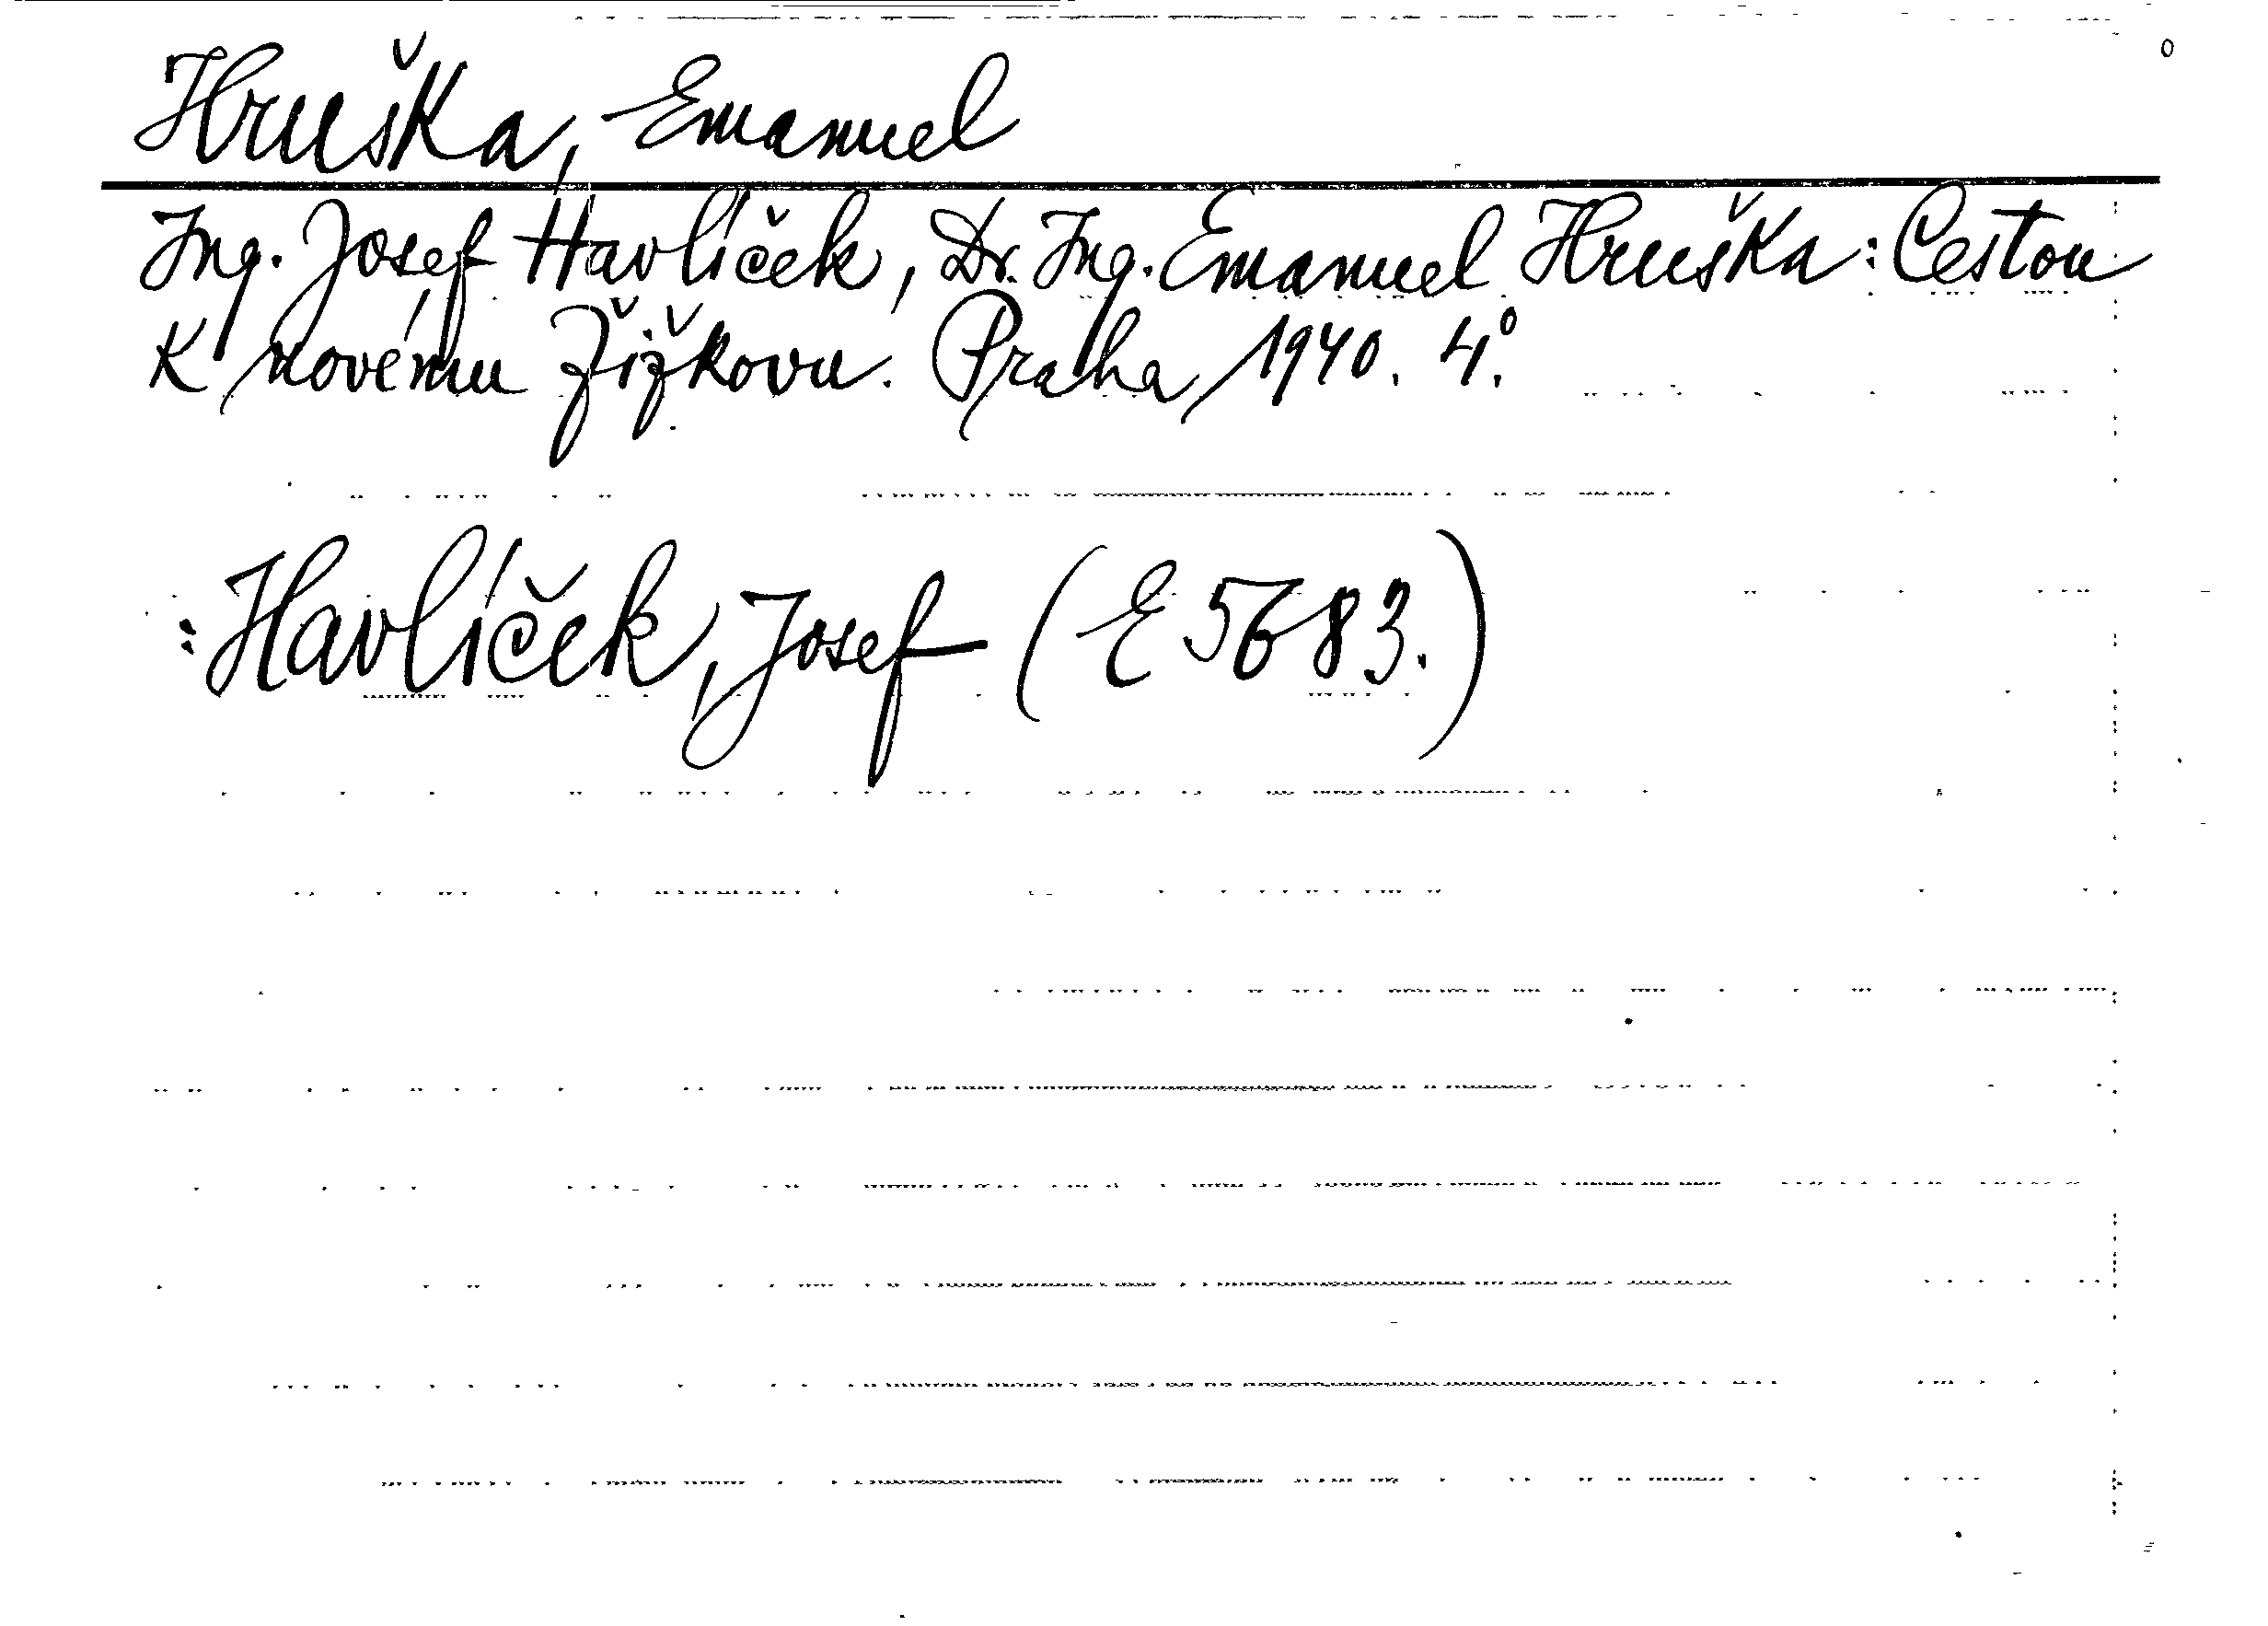 Hruška, Emanuel
Ing. Josef Havlíček, Dr. Ing. Emanuel Hruška: Cestou
K novému Žižkovu. Praha, 1940. 4°.
: Havlíček, Josef (E 5683.)